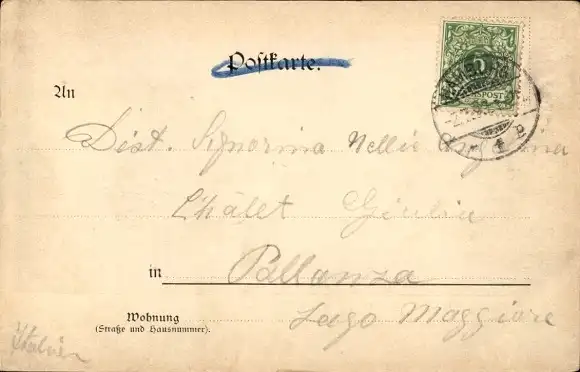 Postkarte.
5
REICHSPOST
An
Dist. Signorina Nellie
Châlet Giulia
in Pallanza
Wohnung
(Straße und Hausnummer).
Lago Maggiore
Italien